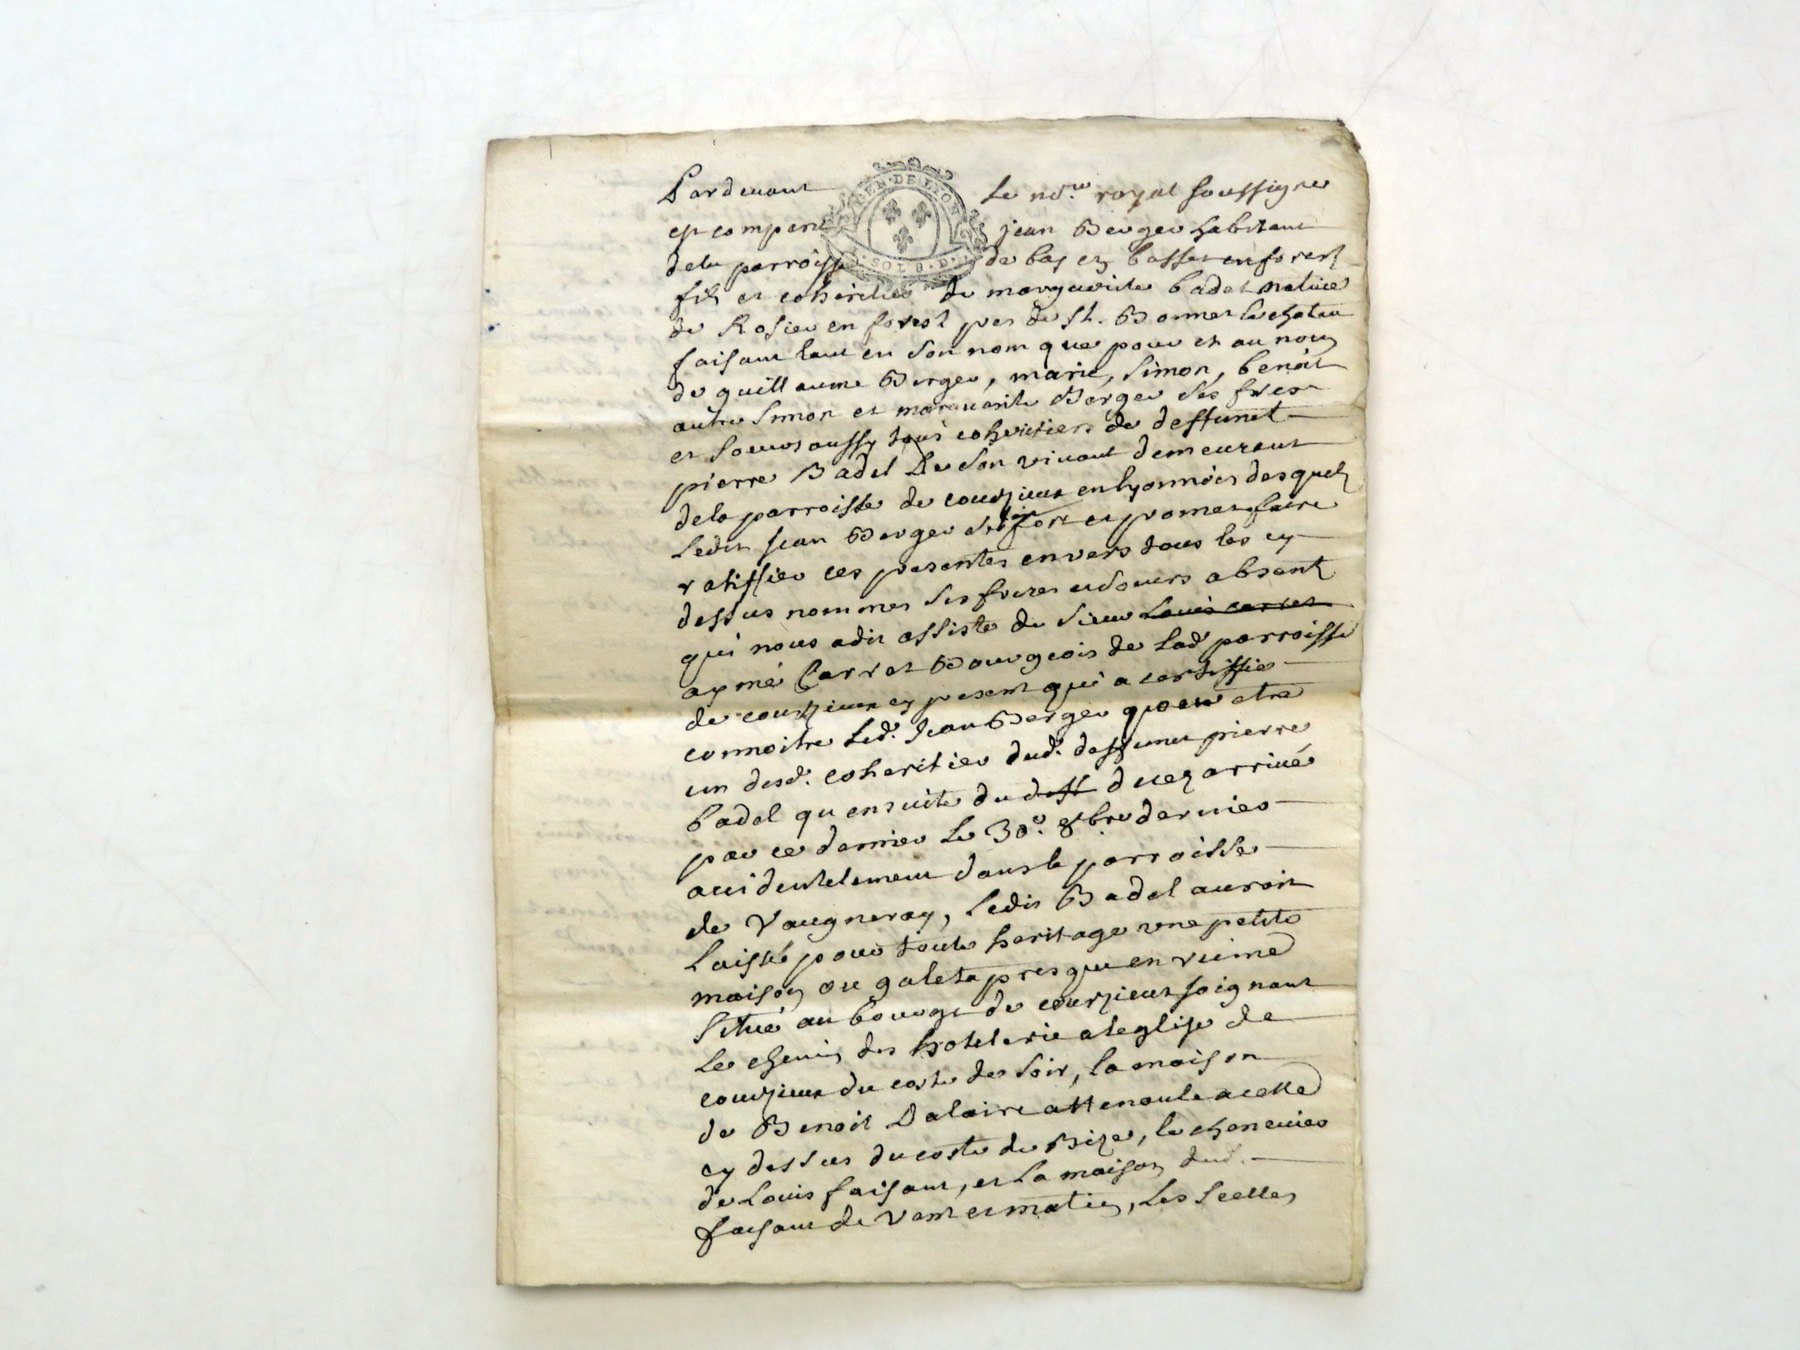 Pardevant le nore. royal soussigne
GEN · DE · LYON
SOL 8 · D ·
est comparu jean Berger habitant
dela parroisse de bas en basset en forest
fils et coheritier de marguerite badel native
de Rosier en forest pres de st. Bonnet le chateau
faisant tant en son nom que pour et au nom
de guillaume Berger, marie, simon, benoit
autre simon et marguerite Berger ses freres
et soeurs aussy tous coheritiers de deffunct
pierre Badel de son vivant demeurant
dela parroisse de courzieux en lyonnois desquels
ledit jean Berger se fait fort et promet faire
ratiffier ces presentes envers tous les cy
dessus nommes ses freres et soeurs absents
qui nous a dit assiste de sieur Louis carret
aymé Carret Bourgeois de lad. parroisse
de courzieux cy present qui a certiffie
connoitre led. Jean Berger pour etre
un desd. coheritier dud. deffunct pierre
badel qu ensuite du deff decez arrivé
par ce dernier le 30e. 8bre dernier
accidentelement dans la parroisse
de Vaugneray, ledit Badel auroit
laissé pour toute heritage une petite
maison ou galeta presque en ruine
situé au bourg de courzieux joignant
le chemin des hotelerie a leglise de
courzieux du coste de soir, la maison
de Benoit Dalaire attenante a celle
cy dessus du coste de Bize, le chenevier
de Louis faisant, et la maison dud.
faisant de vent et matin, les scelles